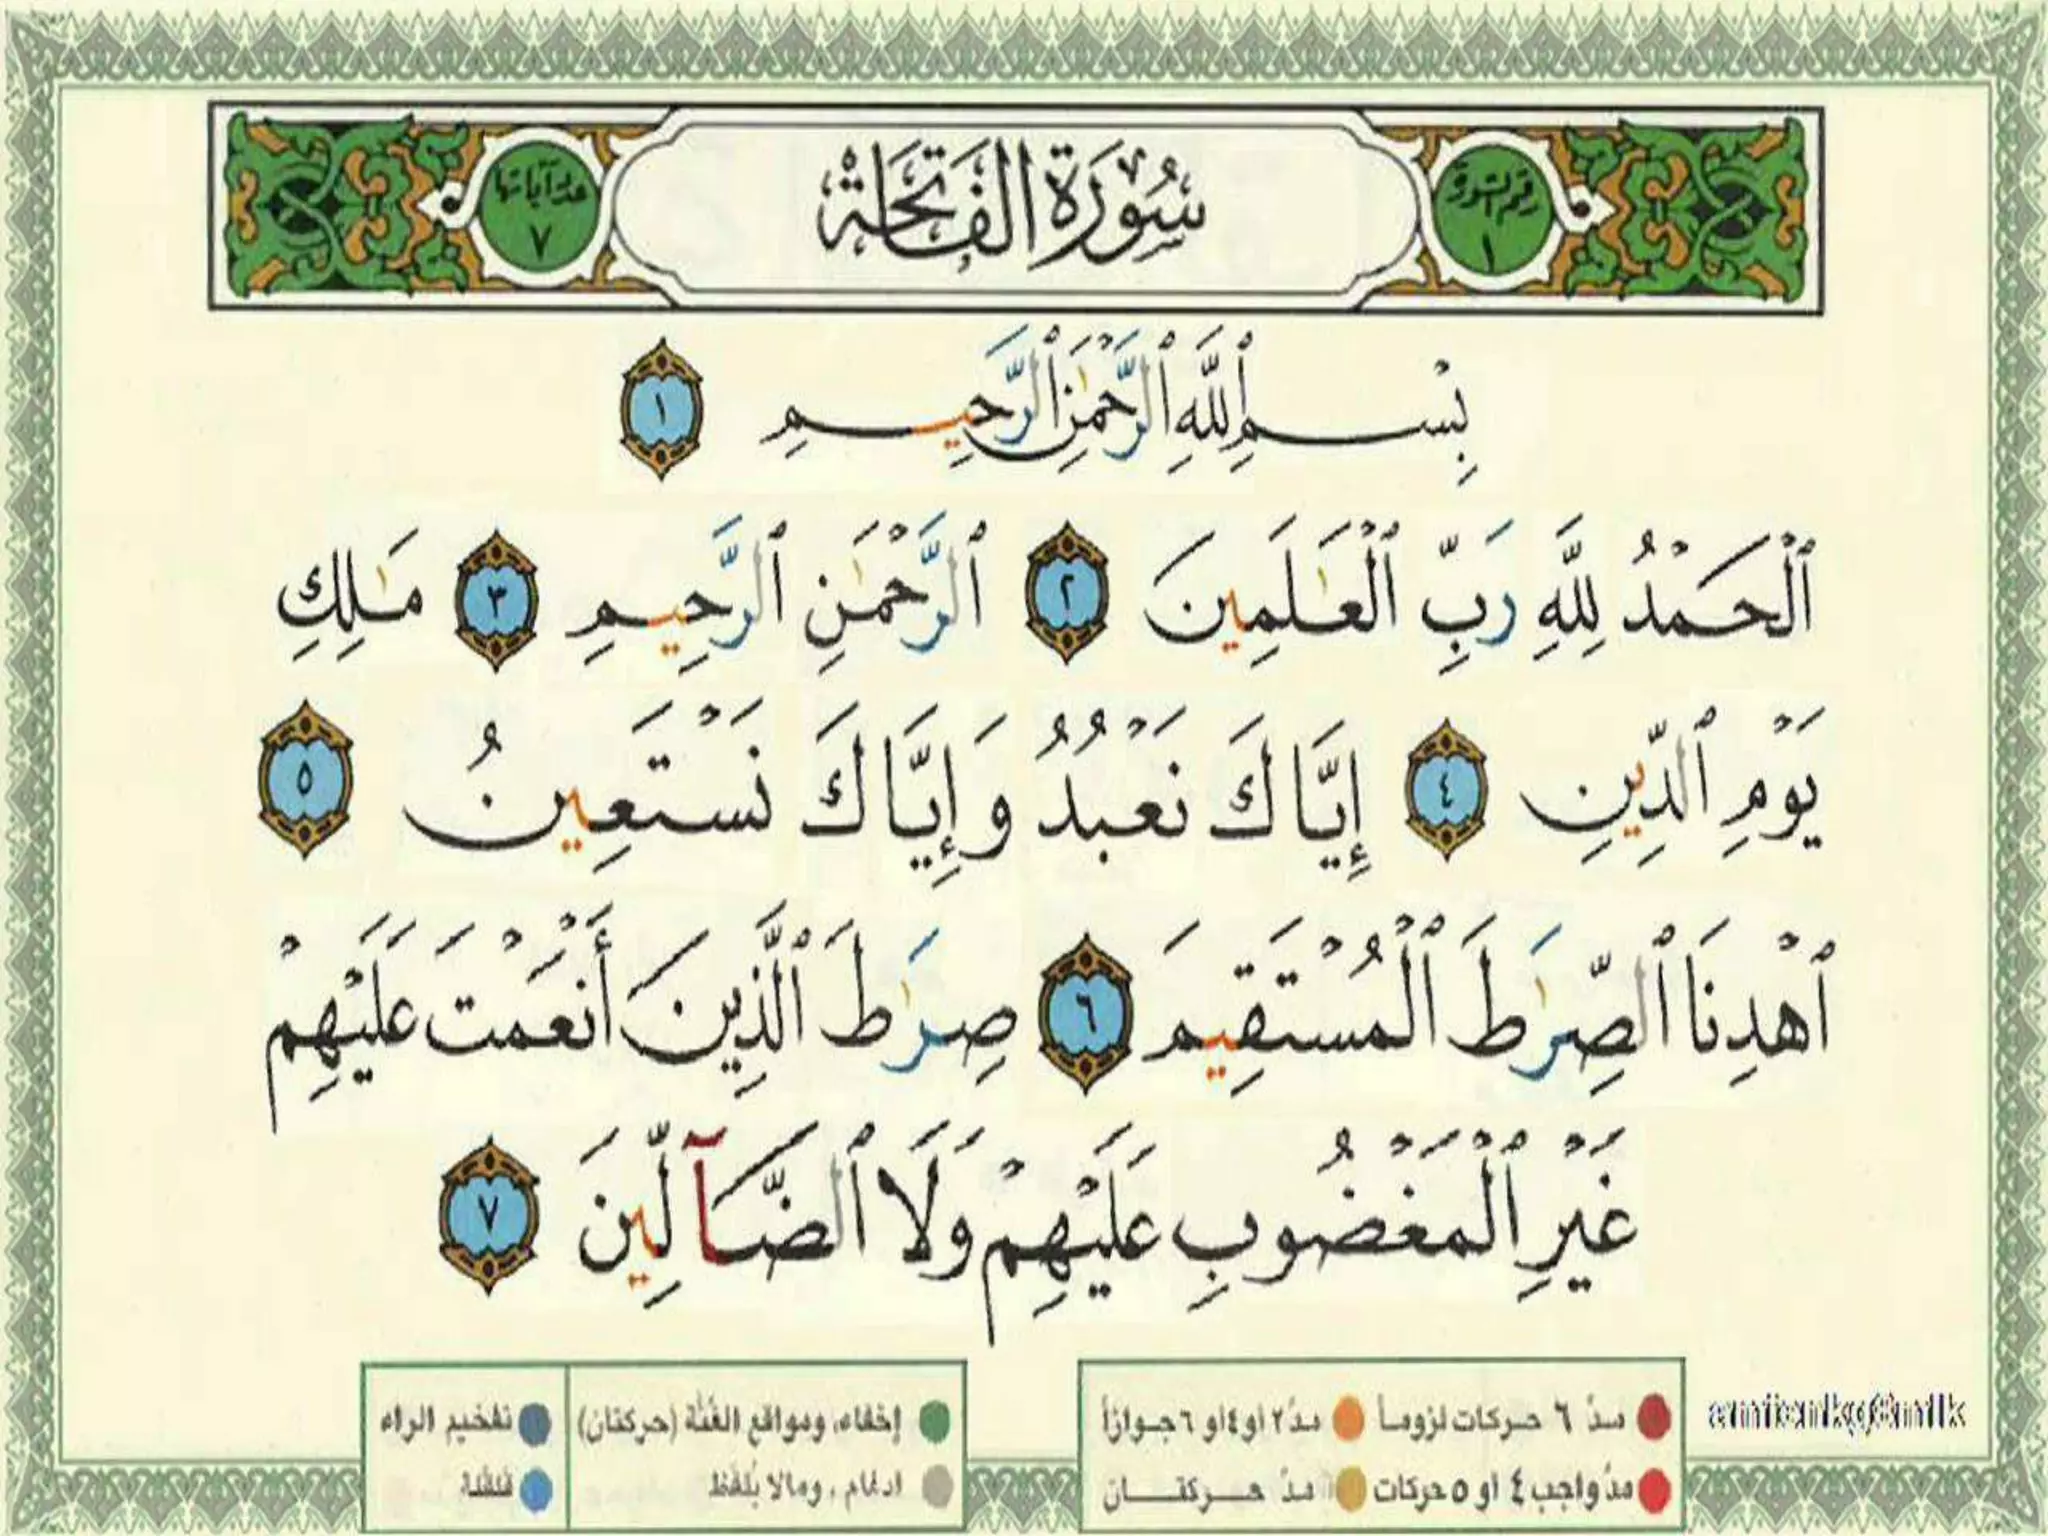 رقم السورة ١
سُورَةُ الفَاتِحَةِ
عدد آياتها ٧
بِسْمِ ٱللَّهِ ٱلرَّحْمَٰنِ ٱلرَّحِيمِ ١
ٱلْحَمْدُ لِلَّهِ رَبِّ ٱلْعَٰلَمِينَ ٢ ٱلرَّحْمَٰنِ ٱلرَّحِيمِ ٣ مَٰلِكِ
يَوْمِ ٱلدِّينِ ٤ إِيَّاكَ نَعْبُدُ وَإِيَّاكَ نَسْتَعِينُ ٥
ٱهْدِنَا ٱلصِّرَٰطَ ٱلْمُسْتَقِيمَ ٦ صِرَٰطَ ٱلَّذِينَ أَنْعَمْتَ عَلَيْهِمْ
غَيْرِ ٱلْمَغْضُوبِ عَلَيْهِمْ وَلَا ٱلضَّآلِّينَ ٧
مدّ ٦ حركات لزوماً
مدّ ٢ او ٤ او ٦ جوازاً
مدّ واجب ٤ او ٥ حركات
مدّ حركتان
إخفاء، ومواقع الغُنَّة (حركتان)
ادغام، ومالا يُلفَظ
تفخيم الراء
قلقلة